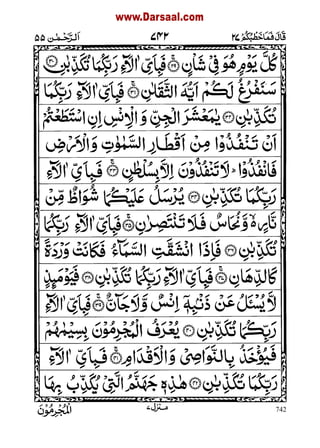 www.Darsaal.com
قَالَ فَمَا خَطْبُكُمْ ٢٧ ٧٤٢ اَلرَّحْمٰن ٥٥
كُلَّ يَوْمٍ هُوَ فِيْ شَاْنٍ ﴿٢٩﴾ فَبِاَيِّ اٰلَآءِ رَبِّكُمَا تُكَذِّبٰنِ ﴿٣٠﴾
سَنَفْرُغُ لَكُمْ اَيُّهَ الثَّقَلٰنِ ﴿٣١﴾ فَبِاَيِّ اٰلَآءِ رَبِّكُمَا
تُكَذِّبٰنِ ﴿٣٢﴾ يٰمَعْشَرَ الْجِنِّ وَ الْاِنْسِ اِنِ اسْتَطَعْتُمْ
اَنْ تَنْفُذُوْا مِنْ اَقْطَارِ السَّمٰوٰتِ وَ الْاَرْضِ
فَانْفُذُوْا ؕ لَا تَنْفُذُوْنَ اِلَّا بِسُلْطٰنٍ ﴿٣٣﴾ فَبِاَيِّ اٰلَآءِ
رَبِّكُمَا تُكَذِّبٰنِ ﴿٣٤﴾ يُرْسَلُ عَلَيْكُمَا شُوَاظٌ مِّنْ
نَّارٍ ۙ۬ وَّ نُحَاسٌ فَلَا تَنْتَصِرٰنِ ﴿٣٥﴾ فَبِاَيِّ اٰلَآءِ رَبِّكُمَا
تُكَذِّبٰنِ ﴿٣٦﴾ فَاِذَا انْشَقَّتِ السَّمَآءُ فَكَانَتْ وَرْدَةً
كَالدِّهَانِ ﴿٣٧﴾ فَبِاَيِّ اٰلَآءِ رَبِّكُمَا تُكَذِّبٰنِ ﴿٣٨﴾ فَيَوْمَئِذٍ
لَّا يُسْـَٔلُ عَنْ ذَنْۢبِهٖۤ اِنْسٌ وَّ لَا جَآنٌّ ﴿٣٩﴾ فَبِاَيِّ اٰلَآءِ
رَبِّكُمَا تُكَذِّبٰنِ ﴿٤٠﴾ يُعْرَفُ الْمُجْرِمُوْنَ بِسِيْمٰهُمْ
فَيُؤْخَذُ بِالنَّوَاصِيْ وَ الْاَقْدَامِ ﴿٤١﴾ فَبِاَيِّ اٰلَآءِ
رَبِّكُمَا تُكَذِّبٰنِ ﴿٤٢﴾ هٰذِهٖ جَهَنَّمُ الَّتِيْ يُكَذِّبُ بِهَا
742 منزل ٧ الْمُجْرِمُوْنَ